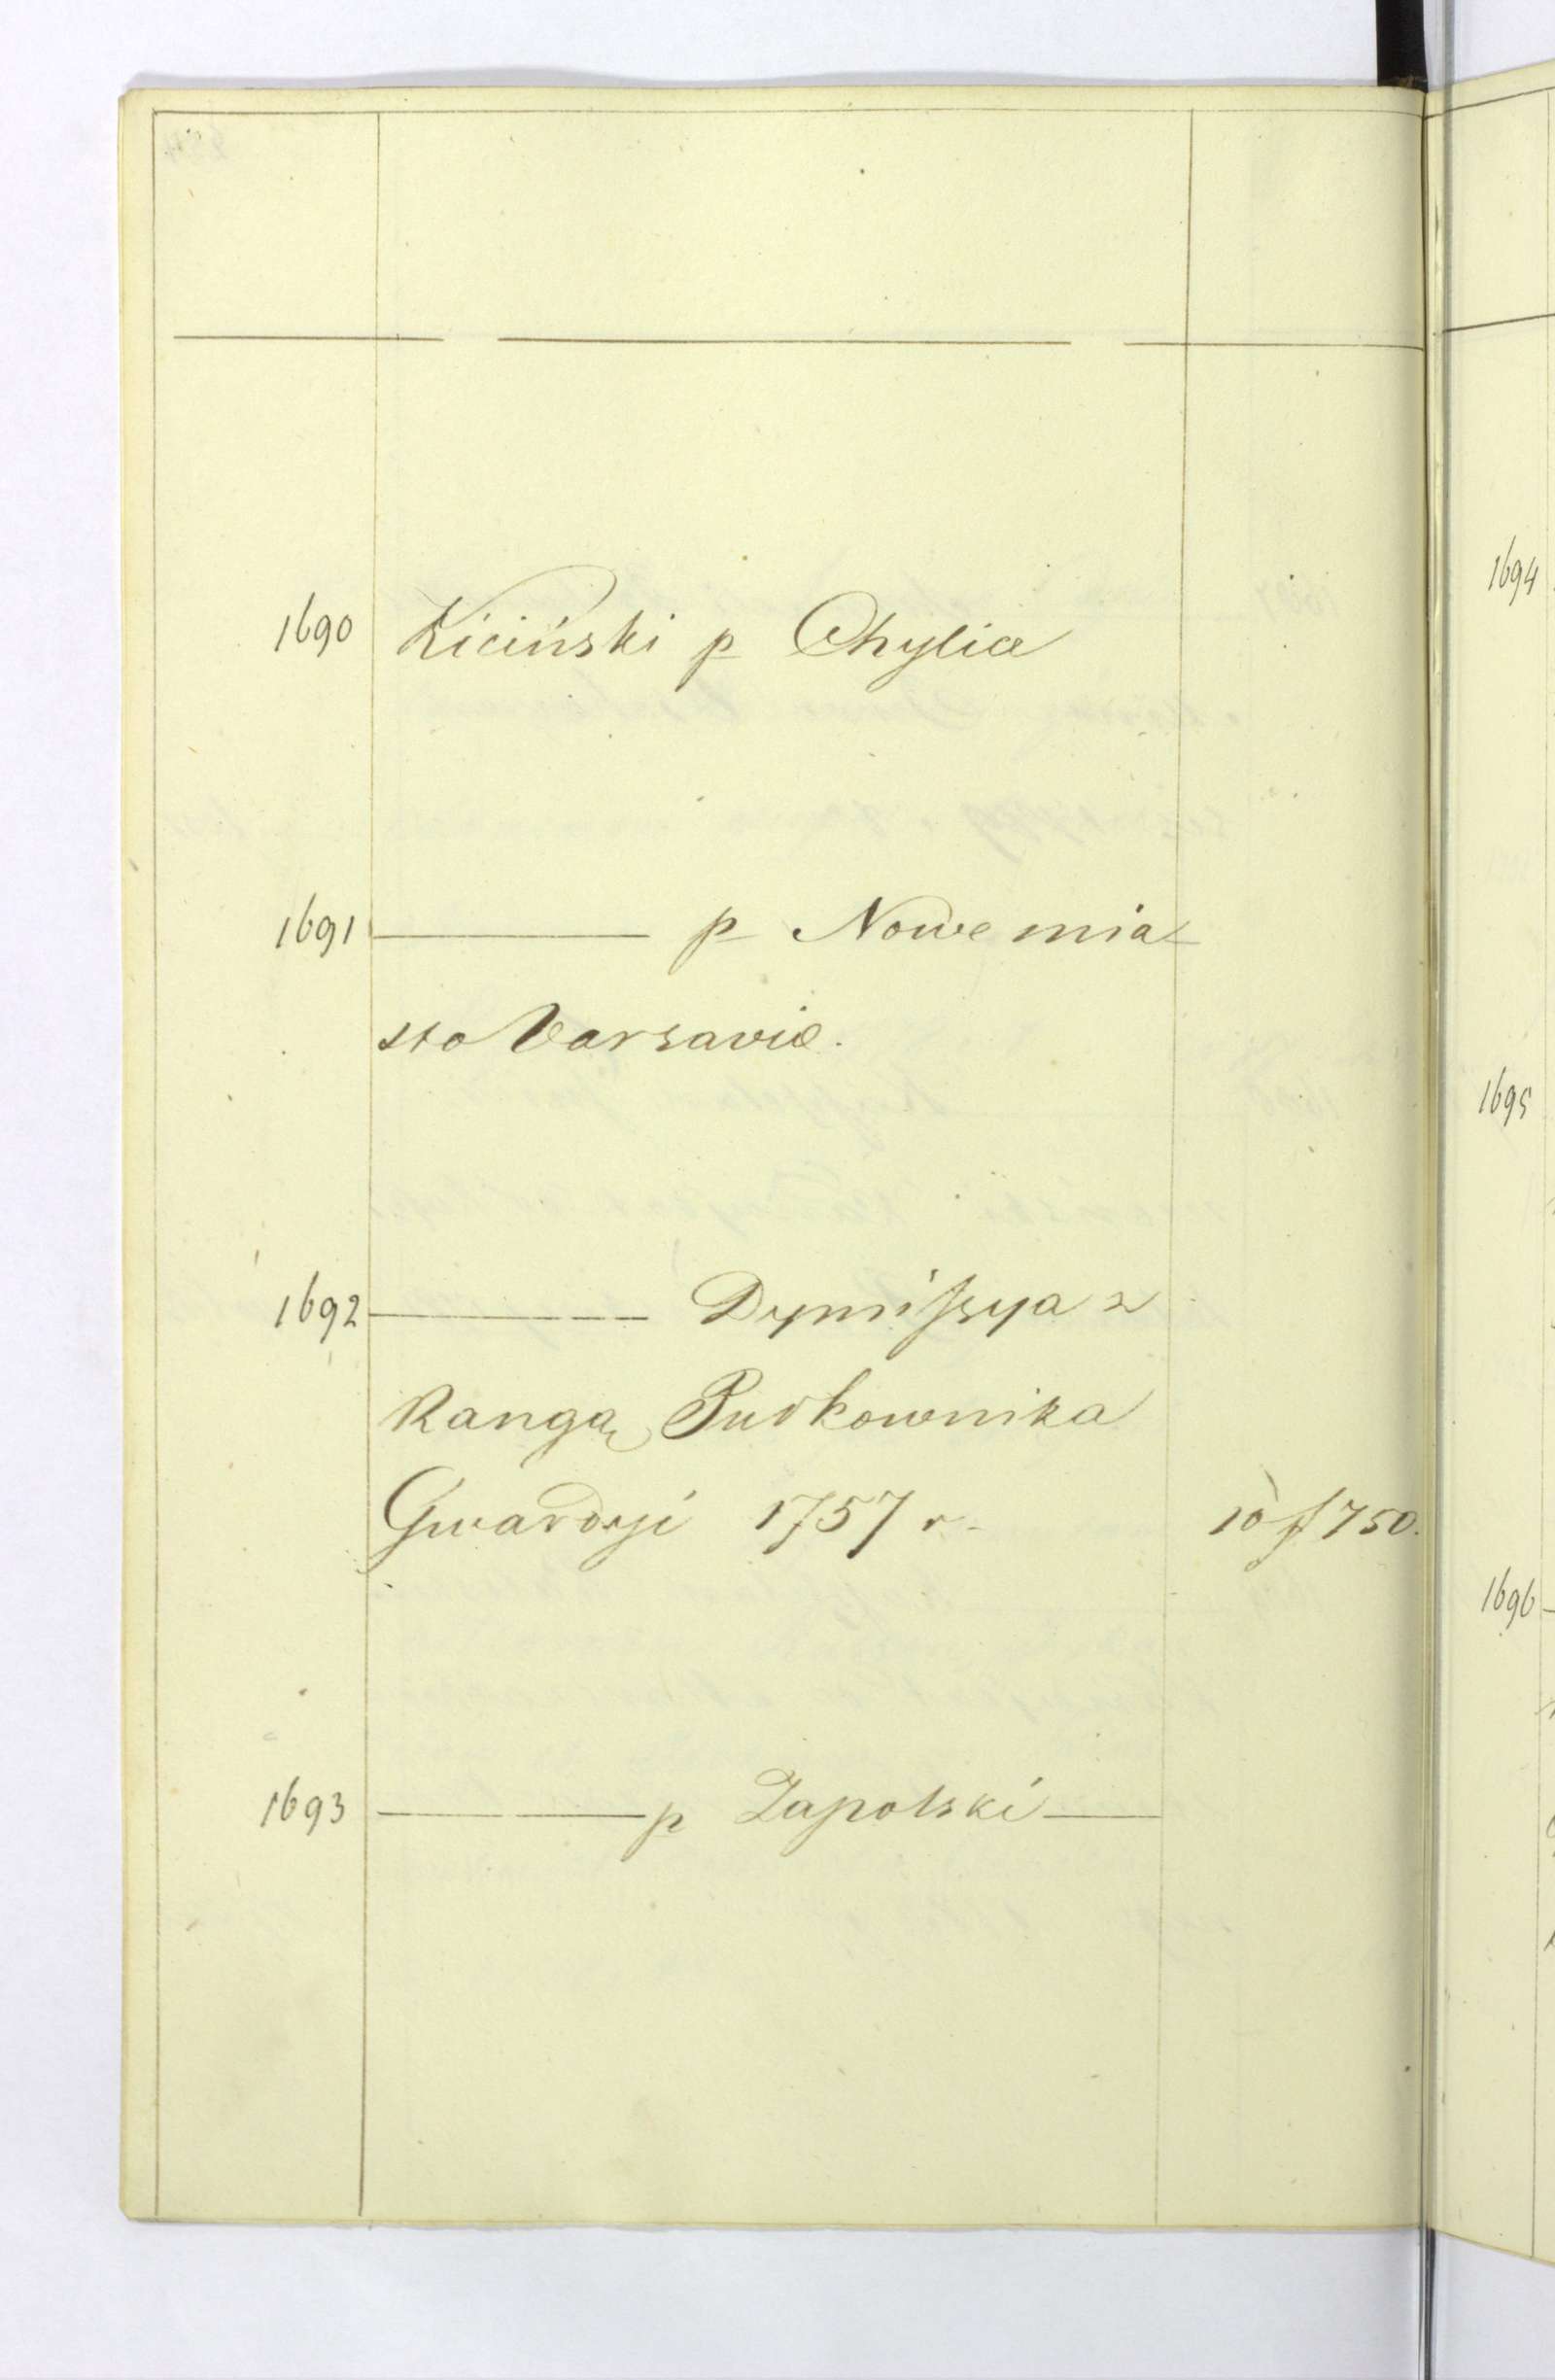 1690 Kiciński p Chylice
1691 ——— p Nowe mia-
sto Varsaviæ.
1692 ——— Dymissya z
Rangą Pułkownika
Gwardyi 1757 r. 10 f 750.
1693 ——— p Zapolski ——
1694
1695
1696